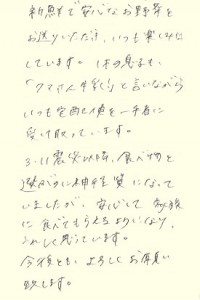 新鮮で安心なお野菜を
お送りいただき、いつも楽しみに
しています。1才の息子も
「クマさん牛乳」と言いながら
いつも宅配の便を一手に
受け取っています。
3.11震災以降、食べ物を
選ぶのに神経質になって
いましたが、安心して家族
に食べてもらえるようになり、
うれしく思っています。
今後とも、よろしくお願い
致します。